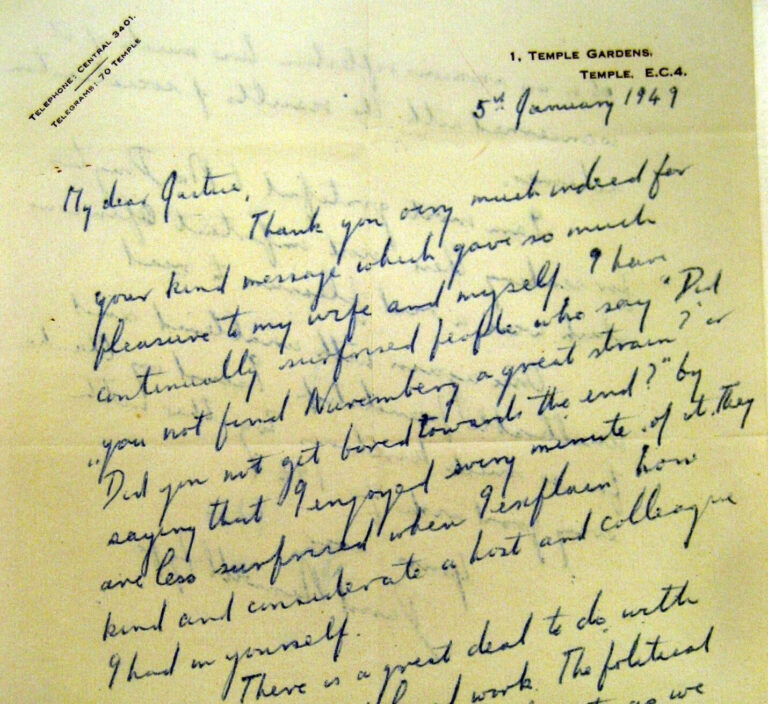 TELEPHONE: CENTRAL 3401.
TELEGRAMS: 70 TEMPLE
1, TEMPLE GARDENS,
TEMPLE, E.C.4.
5th January 1949
My dear Justice,
Thank you very much indeed for
your kind message which gave so much
pleasure to my wife and myself. I have
continually surprised people who say "Did
"you not find Nuremberg a great strain?" or
Did you not get bored towards the end?" by
saying that I enjoyed every minute of it. They
are less surprised when I explain how
kind and considerate a host and colleague
I had in yourself.
There is a great deal to do with
work. The political
as we